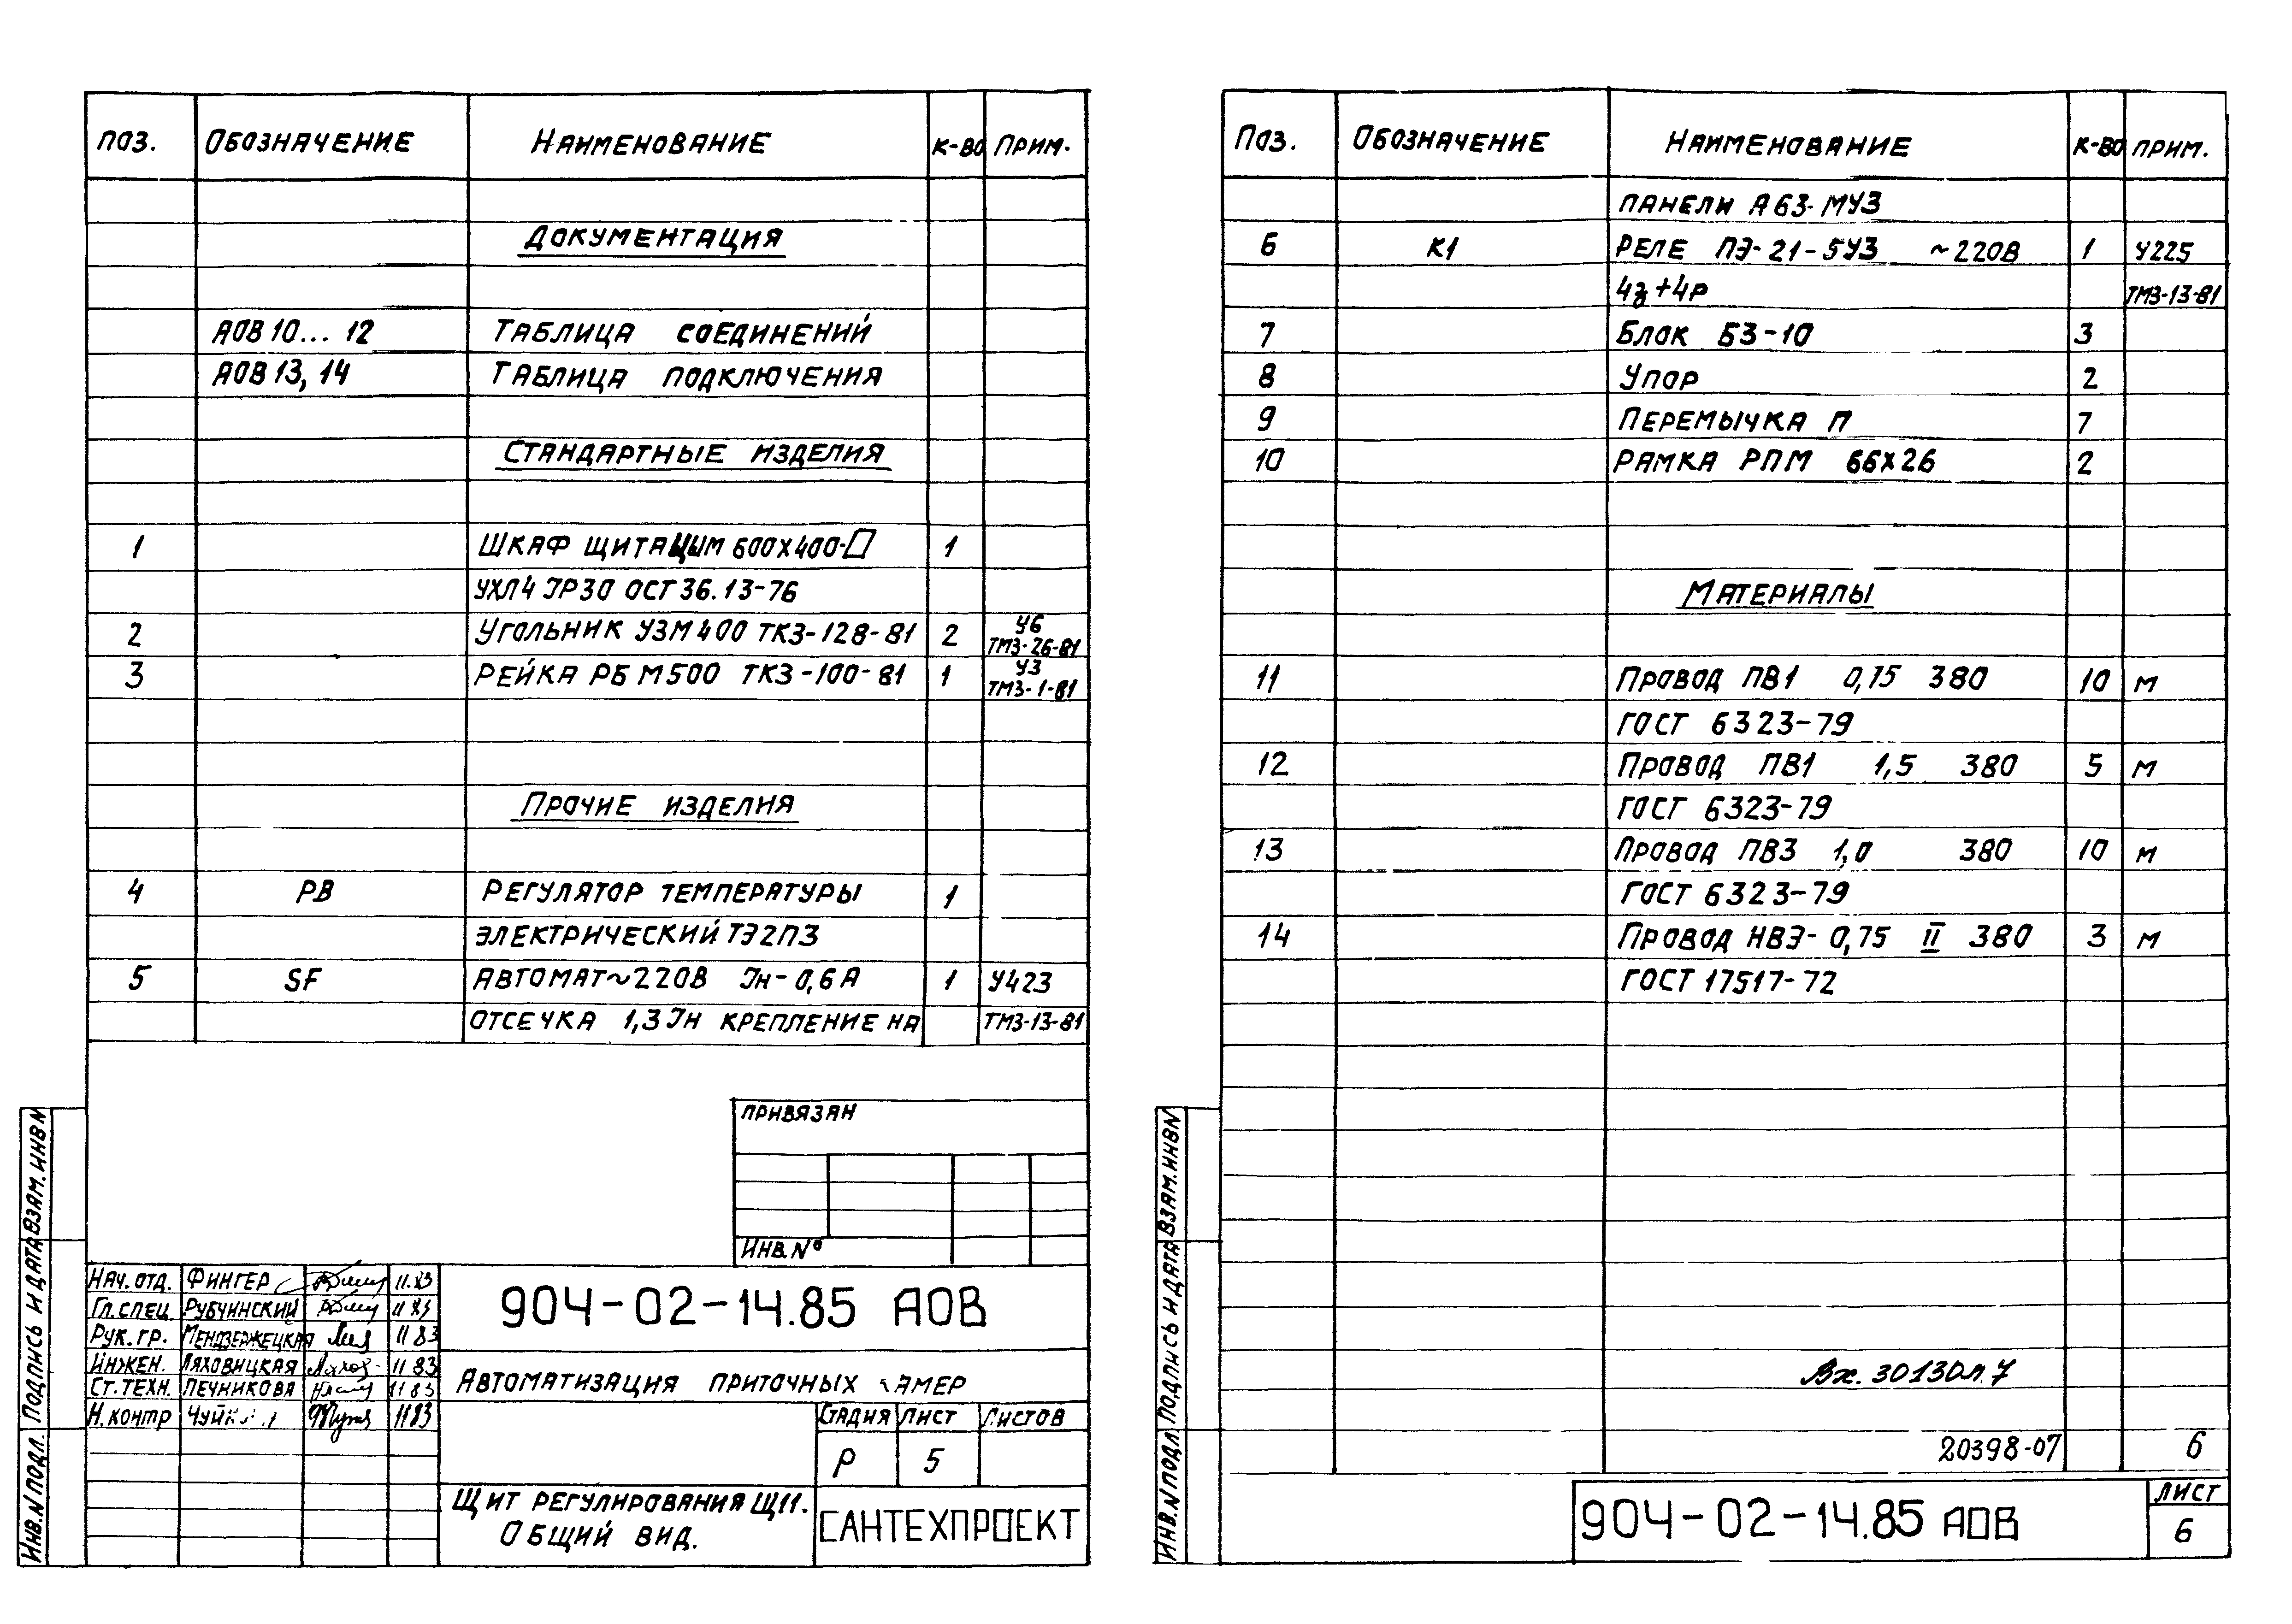 ПОЗ. ОБОЗНАЧЕНИЕ НАИМЕНОВАНИЕ К-ВО ПРИМ.
ДОКУМЕНТАЦИЯ
АОВ 10... 12 ТАБЛИЦА СОЕДИНЕНИЙ
АОВ 13, 14 ТАБЛИЦА ПОДКЛЮЧЕНИЯ
СТАНДАРТНЫЕ ИЗДЕЛИЯ
1 ШКАФ ЩИТА ЩШМ 600Х400-□ 1
УХЛ4 IP30 ОСТ 36.13-76
2 УГОЛЬНИК УЗМ400 ТК3-128-81 2 У6 ТМ3-26-81
3 РЕЙКА РБМ500 ТК3-100-81 1 У3 ТМ3-1-81
ПРОЧИЕ ИЗДЕЛИЯ
4 РВ РЕГУЛЯТОР ТЕМПЕРАТУРЫ 1
ЭЛЕКТРИЧЕСКИЙ ТЭ2П3
5 SF АВТОМАТ ~220В Iн-0,6А 1 У423
ОТСЕЧКА 1,3 Iн КРЕПЛЕНИЕ НА ТМ3-13-81
ПРИВЯЗАН
ИНВ.№
НАЧ. ОТД. ФИНГЕР 11.83
ГЛ. СПЕЦ РУБЧИНСКИЙ 11 83
РУК. ГР. МЕНДЗЕРЖЕЦКАЯ 11 83
ИНЖЕН. ЛЯХОВИЦКАЯ 11 83
СТ. ТЕХН. ПЕЧНИКОВА 11 83
Н. КОНТР 11 83
904-02-14.85 АОВ
АВТОМАТИЗАЦИЯ ПРИТОЧНЫХ АМЕР
СТАДИЯ ЛИСТ ЛИСТОВ
Р 5
ЩИТ РЕГУЛИРОВАНИЯ Щ11.
ОБЩИЙ ВИД.
САНТЕХПРОЕКТ
ИНВ.N ПОДЛ. ПОДПИСЬ И ДАТА ВЗАМ.ИНВ N
ПОЗ. ОБОЗНАЧЕНИЕ НАИМЕНОВАНИЕ К-ВО ПРИМ.
ПАНЕЛИ А63-МУ3
6 К1 РЕЛЕ ПЭ-21-5У3 ~220В 1 У225
4з+4р ТМ3-13-81
7 БЛОК БЗ-10 3
8 УПОР 2
9 ПЕРЕМЫЧКА П 7
10 РАМКА РПМ 66Х26 2
МАТЕРИАЛЫ
11 ПРОВОД ПВ1 0,75 380 10 м
ГОСТ 6323-79
12 ПРОВОД ПВ1 1,5 380 5 м
ГОСТ 6323-79
13 ПРОВОД ПВ3 1,0 380 10 м
ГОСТ 6323-79
14 ПРОВОД НВЭ-0,75 II 380 3 м
ГОСТ 17517-72
Вх. 30130л.7
20398-07 6
904-02-14.85 АОВ
ЛИСТ
6
ИНВ.N ПОДЛ. ПОДПИСЬ И ДАТА ВЗАМ.ИНВ N